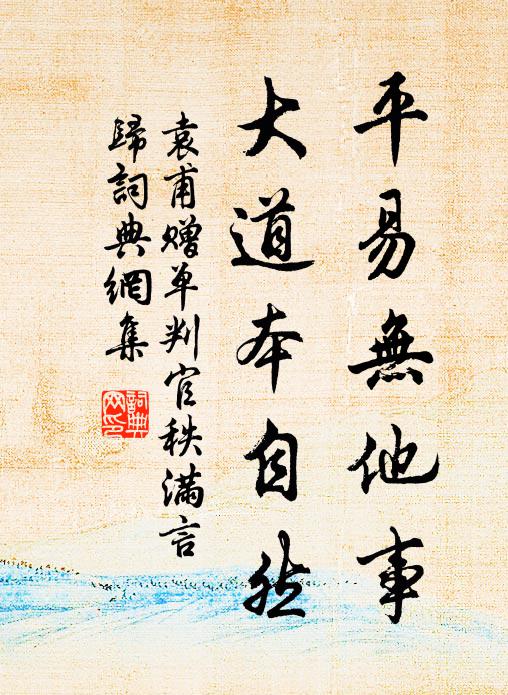 平易無他事
大道本自然
袁甫赠单判官秩滿言
歸詞典網集
詞典网印